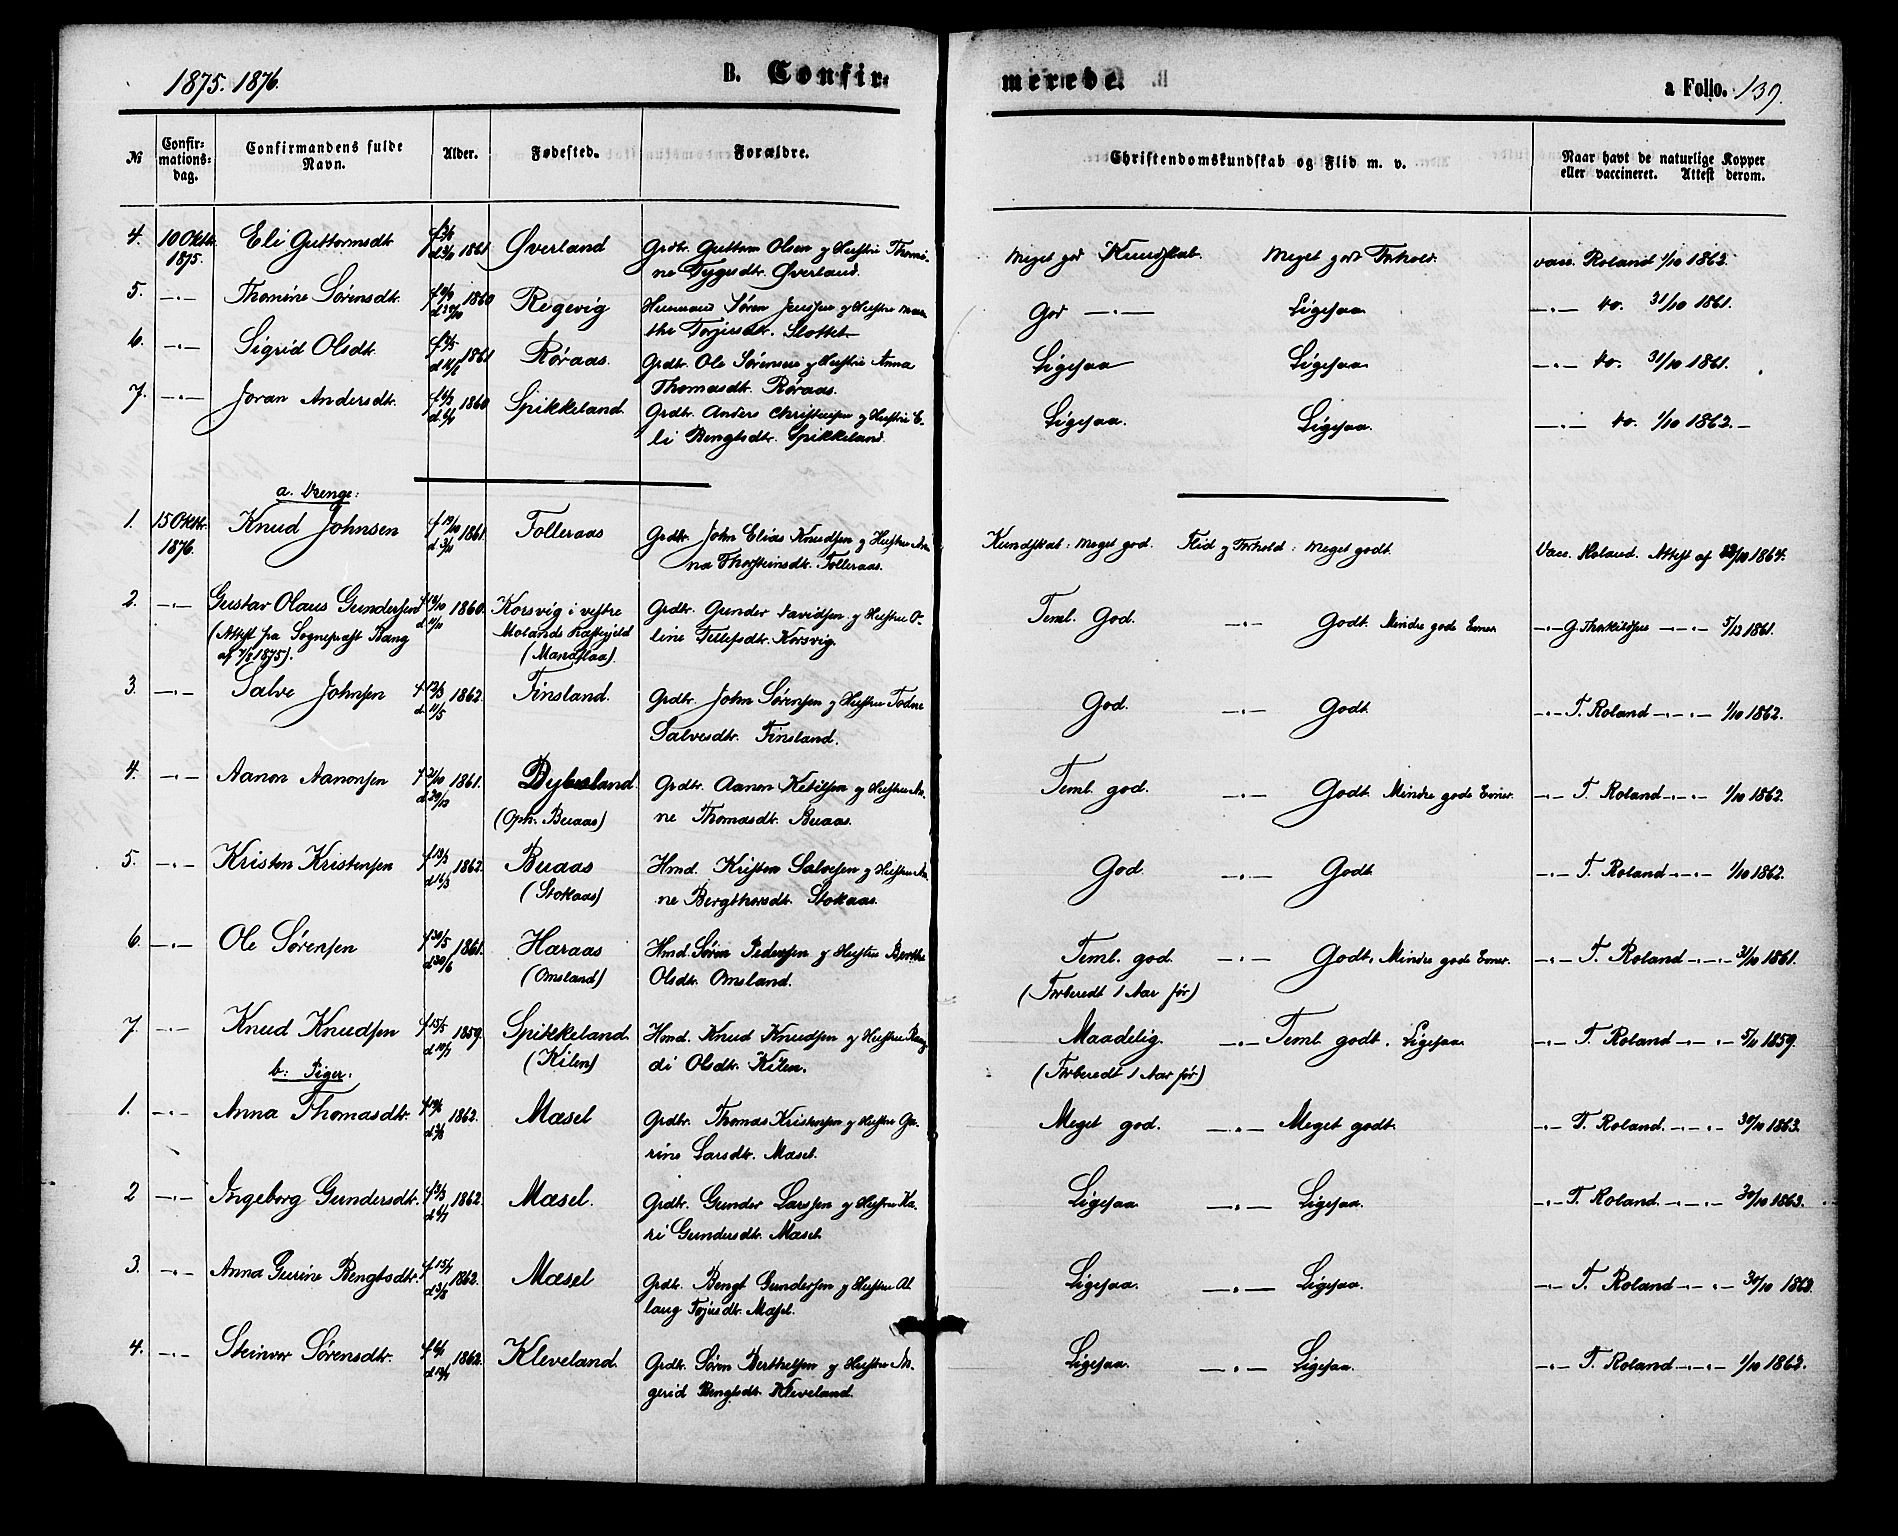 1875. 1876.
B. Confirmerede.
a Folio. 139.
№ Confirmations-dag. Confirmandens fulde Navn. Alder. Fødested. Forældre. Christendomskundskab og Flid m. v. Naar havt de naturlige Kopper eller vaccineret. Attest derom.
4. 10 Oktbr. 1875. Eli Guttormsdtr. 1861 Øverland Grdbr. Guttorm Olsen og Hustru Thomine Tygesdtr. Øverland. Meget god Kundskab. Meget godt Forhold. vacc. Roland 1/10 1862.
5. —"— Thomine Sørensdtr. 1860 Regevig Huusmand Søren Jenssen og Hustru Marthe Torjusdtr. Slottet. God —"— Ligesaa —"— do. 31/10 1861.
6. —"— Sigrid Olsdtr. 1861 Røraas. Grdbr. Ole Sørensen og Hustru Anna Thomasdtr. Røraas. Ligesaa Ligesaa —"— do. 31/10 1861.
7. —"— Joran Andersdtr. 1860 Spikkeland. Grdbr. Anders Christensen og Hustru Eli Bengtsdtr. Spikkeland. Ligesaa. Ligesaa. —"— do. 1/10 1862.
a. Drenge:
1. 15 Oktbr. 1876. Knud Johnsen f 19/10 1861. Tolleraas Grdbr. John Elias Knudsen og Hustru Anna Thorsteinsdtr. Tolleraas. Kundskab: meget god. Flid og Forhold: meget godt. Vacc. Roland. Attest af 1864.
2. —"— Gustav Olaus Gundersen 1860. Korsvig i vestre Grdbr. Gunder Davidsen og Hustru Oline Tellefsdtr. Korsvig. Teml. God. —"— Godt. Mindre gode Evner. —"— G. Thorkildsen —"— 5/12 1861.
(Attest fra Sogneprest Bang af 1875). Molands Præstegjeld (Mandflaa).
3. —"— Salve Johnsen f 12/3 d 11/5 1862. Finsland. Grdbr. John Sørensen og Hustru Todne Salvesdtr. Finsland. God. —"— Godt —"— T. Roland —"— 1/10 1862.
4. —"— Aanon Aanonsen f 21/10 d 29/12 1861. (Oph. Buaas) Grdbr. Aanon Ketilsen og Hustru Anne Thomasdtr. Buaas. Teml. god. —"— Godt. Mindre gode Evner. —"— T. Roland —"— 1/10 1862.
5. —"— Kristen Kristensen 1862. Buaas (Stokaas) Hmd. Kristen Salvesen og Hustru Anne Bergthorsdtr. Stokaas. God. —"— Godt. —"— T. Roland —"— 1/10 1862.
6. —"— Ole Sørensen f 30/5 d 30/6 1861. Haraas (Omsland) Hmd. Søren Pedersen og Hustru Berthe Olsdtr. Omsland. Teml. god —"— Godt. Mindre gode Evner. —"— T. Roland —"— 31/10 1861.
(Forberedt 1 Aar før)
7. —"— Knud Knudsen f 15/5 1859. Spikkeland. (Kilen) Hmd. Knud Knudsen og Hustru Randi Olsdtr. Kilen. Maadelig. —"— Teml. godt. Ligesaa —"— T. Roland —"— 1859.
(Forberedt 1 Aar før)
b: Piger:
1. —"— Anna Thomasdtr. 1862. Mæsel Grdbr. Thomas Kristensen og Hustru Gurine Larsdtr. Mæsel. Meget god. —"— Meget godt. —"— T. Roland. —"— 30/10 1863.
2 —"— Ingeborg Gundersdtr. 1862. Mæsel. Grdbr. Gunder Larssen og Hustru Kari Gundersdtr. Mæsel. Ligesaa —"— Ligesaa. —"— T. Roland. —"— 30/10 1863.
3. —"— Anna Gurine Bengtsdtr. 1862. Mæsel Grdbr. Bengt Gundersen og Hustru Aslaug Tojusdtr. Mæsel. Ligesaa. —"— Ligesaa. —"— T. Roland —"— 30/10 1863.
4. —"— Steinvor Sørensdtr. 1862. Kleveland. Grdbr. Søren Berthelsen og Hustru Angerid Bengtsdtr. Kleveland. Ligesaa. —"— Ligesaa. —"— T. Roland —"— 1/10 1862.